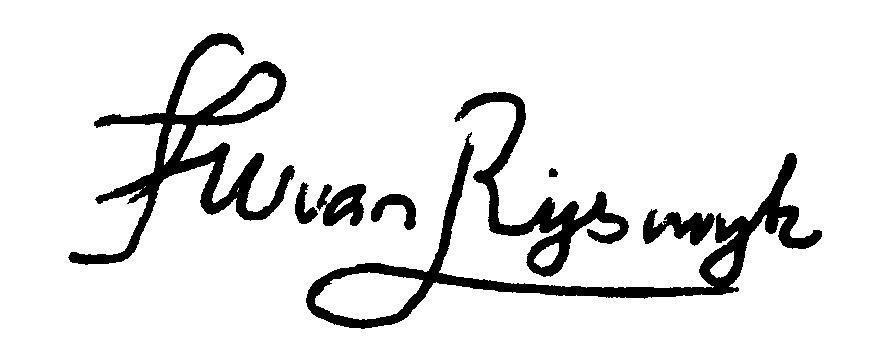 FW van Rijswyk